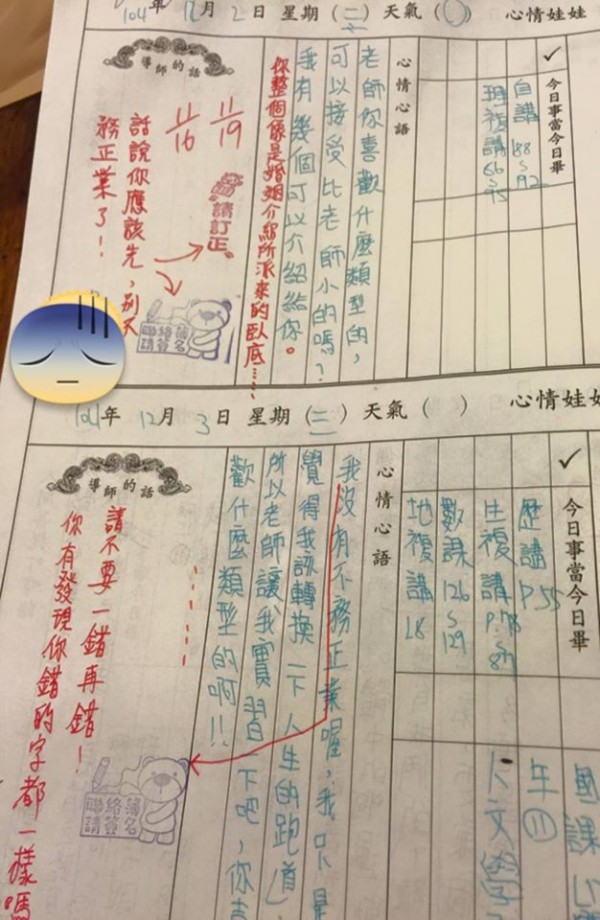 104年 12月 2日 星期(二)天氣( ) 心情娃娃
✓今日事當今日畢
自講 88~92
心情心語
老師你喜歡什麼類型的,
可以接受比老師小的嗎?
我有幾個可以介紹給你。
你整個像是婚姻介紹所派來的臥底……
導師的話
11/19
11/16
請訂正
話說你應該先,別不
務正業了!
聯絡簿
請簽名
12月 3日 星期(三)天氣( ) 心情娃娃
✓今日事當今日畢
歷講 P.55
生複講 P.78~87
數課 126~129
地複講 18
國課
年⑪
人文學
心情心語
我沒有不務正業喔,我只是
覺得我該轉換一下人生的跑道,
所以老師讓我實習一下吧,你喜
歡什麼類型的啊!!
……
導師的話
請不要一錯再錯!
你有發現你錯的字都一樣嗎
聯絡簿
請簽名